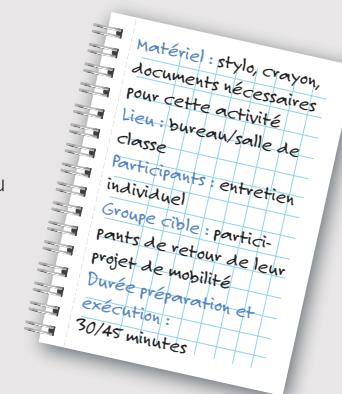 Matériel : stylo, crayon,
documents nécessaires
pour cette activité
Lieu : bureau/salle de
classe
Participants : entretien
individuel
Groupe cible : partici-
pants de retour de leur
projet de mobilité
Durée préparation et
exécution :
30/45 minutes